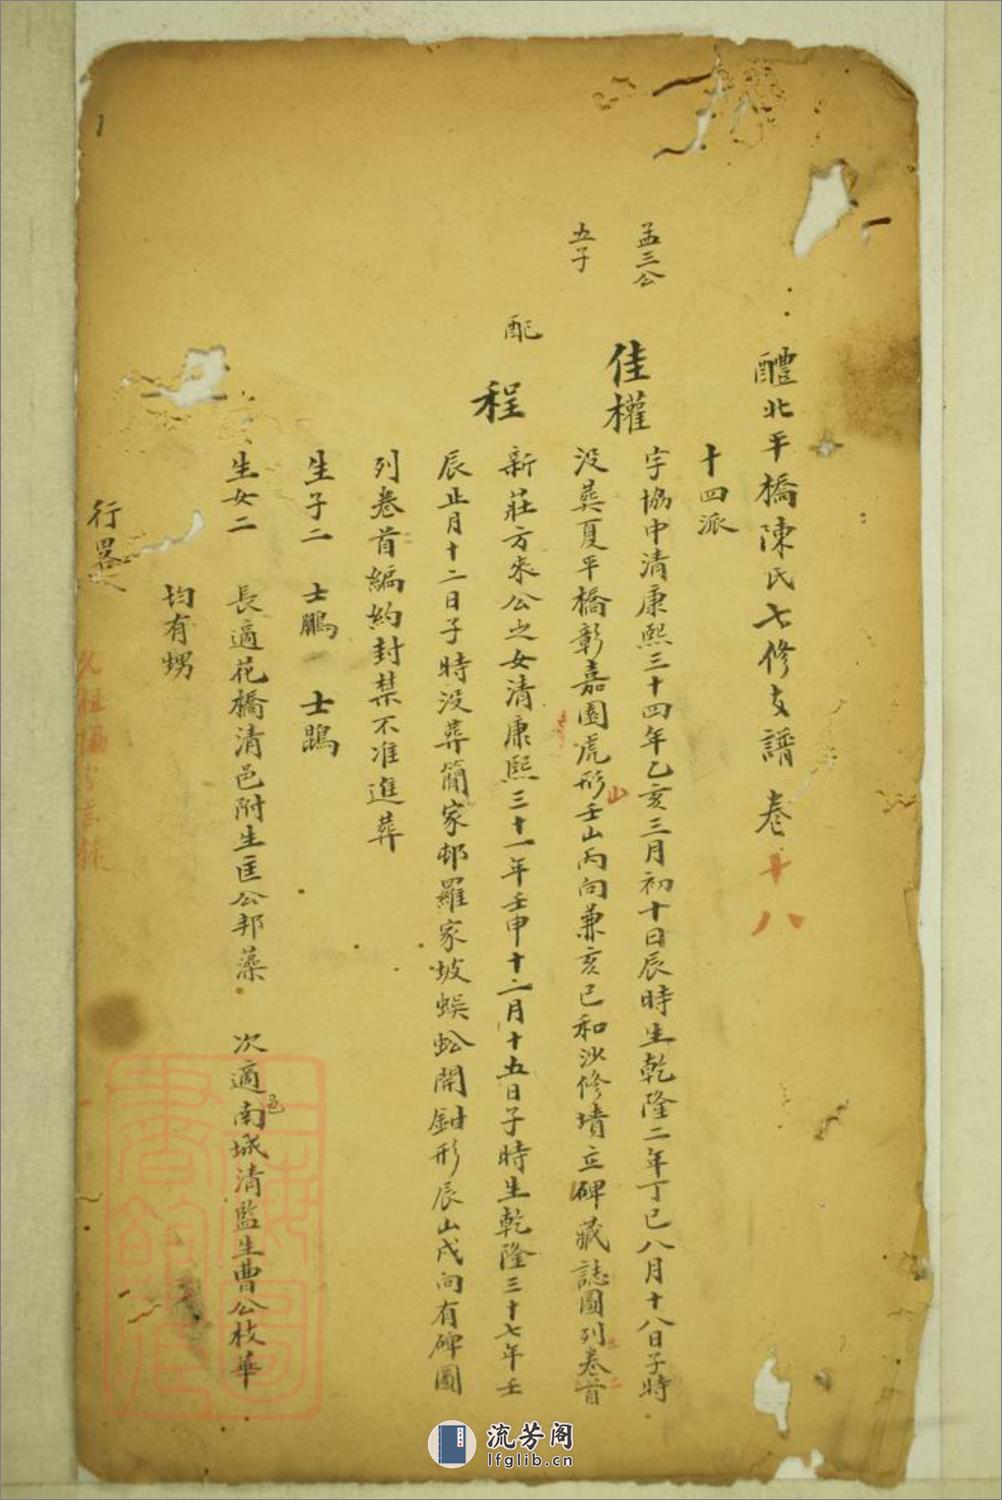 醴北平橋陳氏七修支譜卷十八
十四派
孟三公
五子
佳權
字協中清康熙三十四年乙亥三月初十日辰時生乾隆二年丁巳八月十八日子時
没葬夏平橋彰嘉園虎形壬山丙向兼亥巳和沙修墳立碑藏誌圖列卷首
山
配
程
新莊方來公之女清康熙三十一年壬申十二月十五日子時生乾隆三十七年壬
辰正月十二日子時没葬簡家邨羅家坡蜈蚣開鉗形辰山戌向有碑圖
列卷首編約封禁不准進葬
生子二 士鵬 士鵾
生女二 長適花橋清邑附生匡公邦藻 次適南城清監生曹公枝華
邑
均有甥
行畧
上海圖書館藏
流芳阁
lfglib.cn